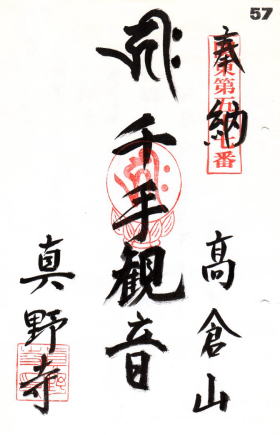 57
奉納
坂東第五七番
高倉山
千手観音
真野寺